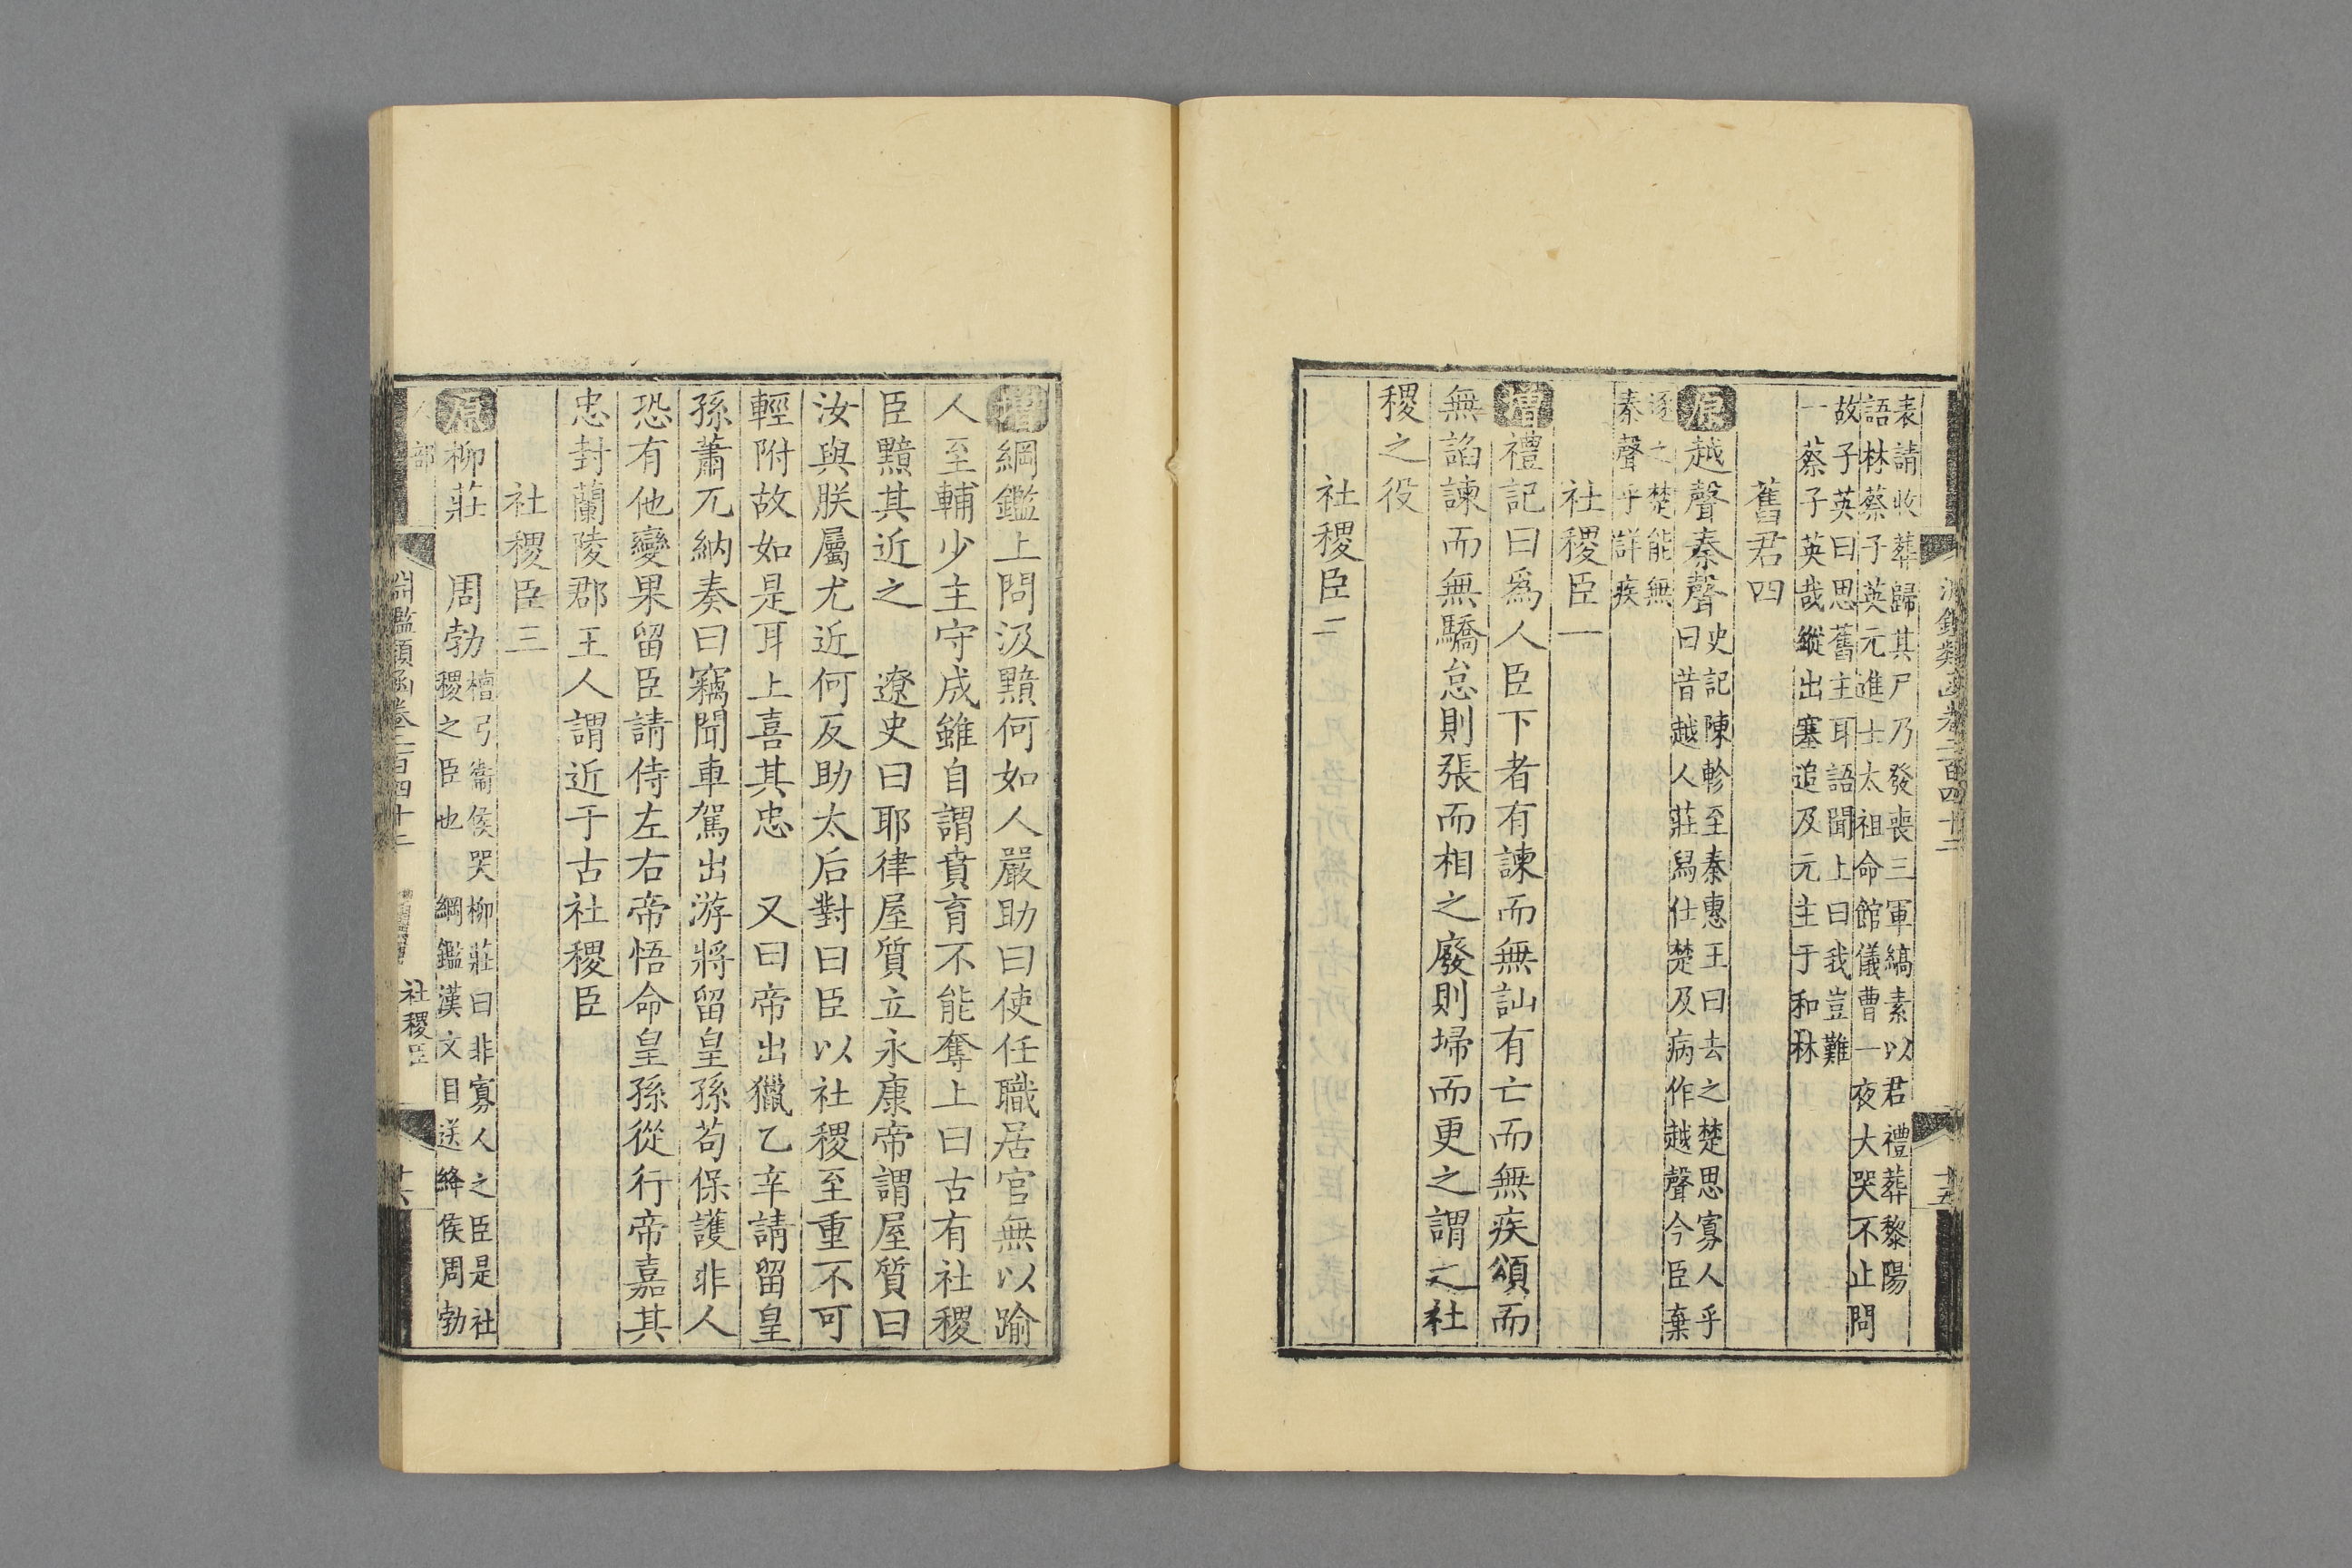 表請收葬歸其尸乃發喪三軍縞素以君禮葬黎陽
語林蔡子英元進士太祖命館儀曹一夜大哭不止問
故子英曰思舊主耳語聞上曰我豈難
一蔡子英哉縱出塞追及元主于和林
舊君四
原越聲秦聲
史記陳軫至秦惠王曰去之楚思寡人乎
曰昔越人莊舄仕楚及病作越聲今臣棄
逐之楚能無
秦聲乎詳疾
社稷臣一
增禮記曰爲人臣下者有諫而無訕有亡而無疾頌而
無諂諫而無驕怠則張而相之廢則埽而更之謂之社
稷之役
社稷臣二
增綱鑑上問汲黯何如人嚴助曰使任職居官無以踰
人至輔少主守成雖自謂賁育不能奪上曰古有社稷
臣黯其近之　遼史曰耶律屋質立永康帝謂屋質曰
汝與朕屬尤近何反助太后對曰臣以社稷至重不可
輕附故如是耳上喜其忠　又曰帝出獵乙辛請留皇
孫蕭兀納奏曰竊聞車駕出游將留皇孫苟保護非人
恐有他變果留臣請侍左右帝悟命皇孫從行帝嘉其
忠封蘭陵郡王人謂近于古社稷臣
社稷臣三
原柳莊　周勃
檀弓衞侯哭柳莊曰非寡人之臣是社
稷之臣也　綱鑑漢文目送絳侯周勃
人部
淵鑑類函卷二百四十二
社稷臣
十六
淵鑑類函卷二百四十二
十五